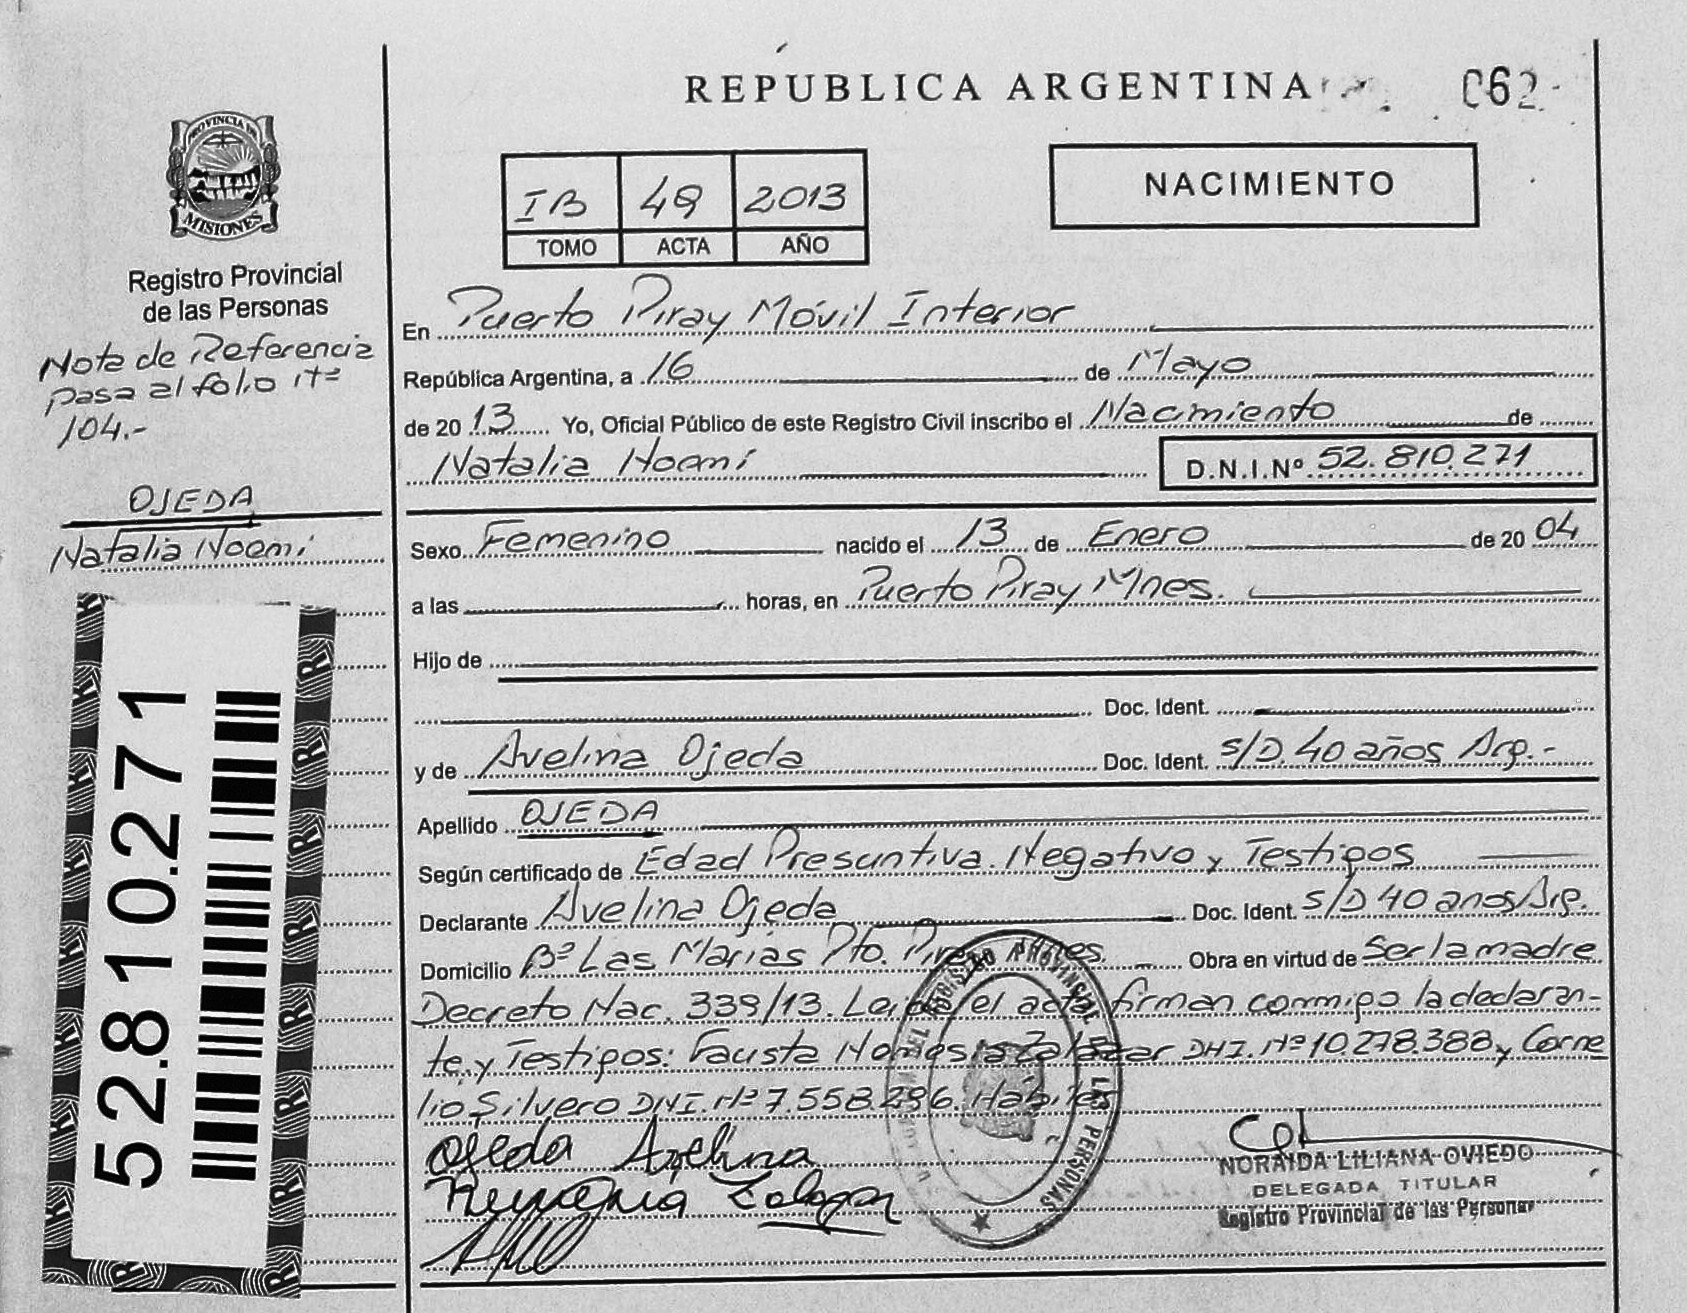 REPUBLICA ARGENTINA
062
PROVINCIA DE
MISIONES
Registro Provincial
de las Personas
Nota de Referencia
pasa al folio Nº
104.-
OJEDA
Natalia Noemí
52.810.271
IB 49 2013
TOMO ACTA AÑO
NACIMIENTO
En Puerto Piray Móvil Interior
República Argentina, a 16 de Mayo
de 2013 Yo, Oficial Público de este Registro Civil inscribo el Nacimiento de
Natalia Noemí D.N.I.Nº 52.810.271
Sexo Femenino nacido el 13 de Enero de 2004
a las horas, en Puerto Piray Mnes.
Hijo de
Doc. Ident.
y de Avelina Ojeda Doc. Ident. S/D. 40 años Arg.-
Apellido OJEDA
Según certificado de Edad Presuntiva. Negativo y Testigos
Declarante Avelina Ojeda Doc. Ident. S/D 40 anos Arg.
Domicilio Bº Las Marías Pto. Piray Mnes. Obra en virtud de Ser la madre
Decreto Nac. 339/13. Leida el acta firman conmigo la declaran-
te, y Testigos: Fausta Zalazar DNI. Nº 10.278.388 y Corne
lio Silvero DNI. Nº 7.558.296. Hábiles
Ojeda Avelina
REGISTRO PROVINCIAL DE LAS PERSONAS
NORAIDA LILIANA OVIEDO
DELEGADA TITULAR
Registro Provincial de las Personas